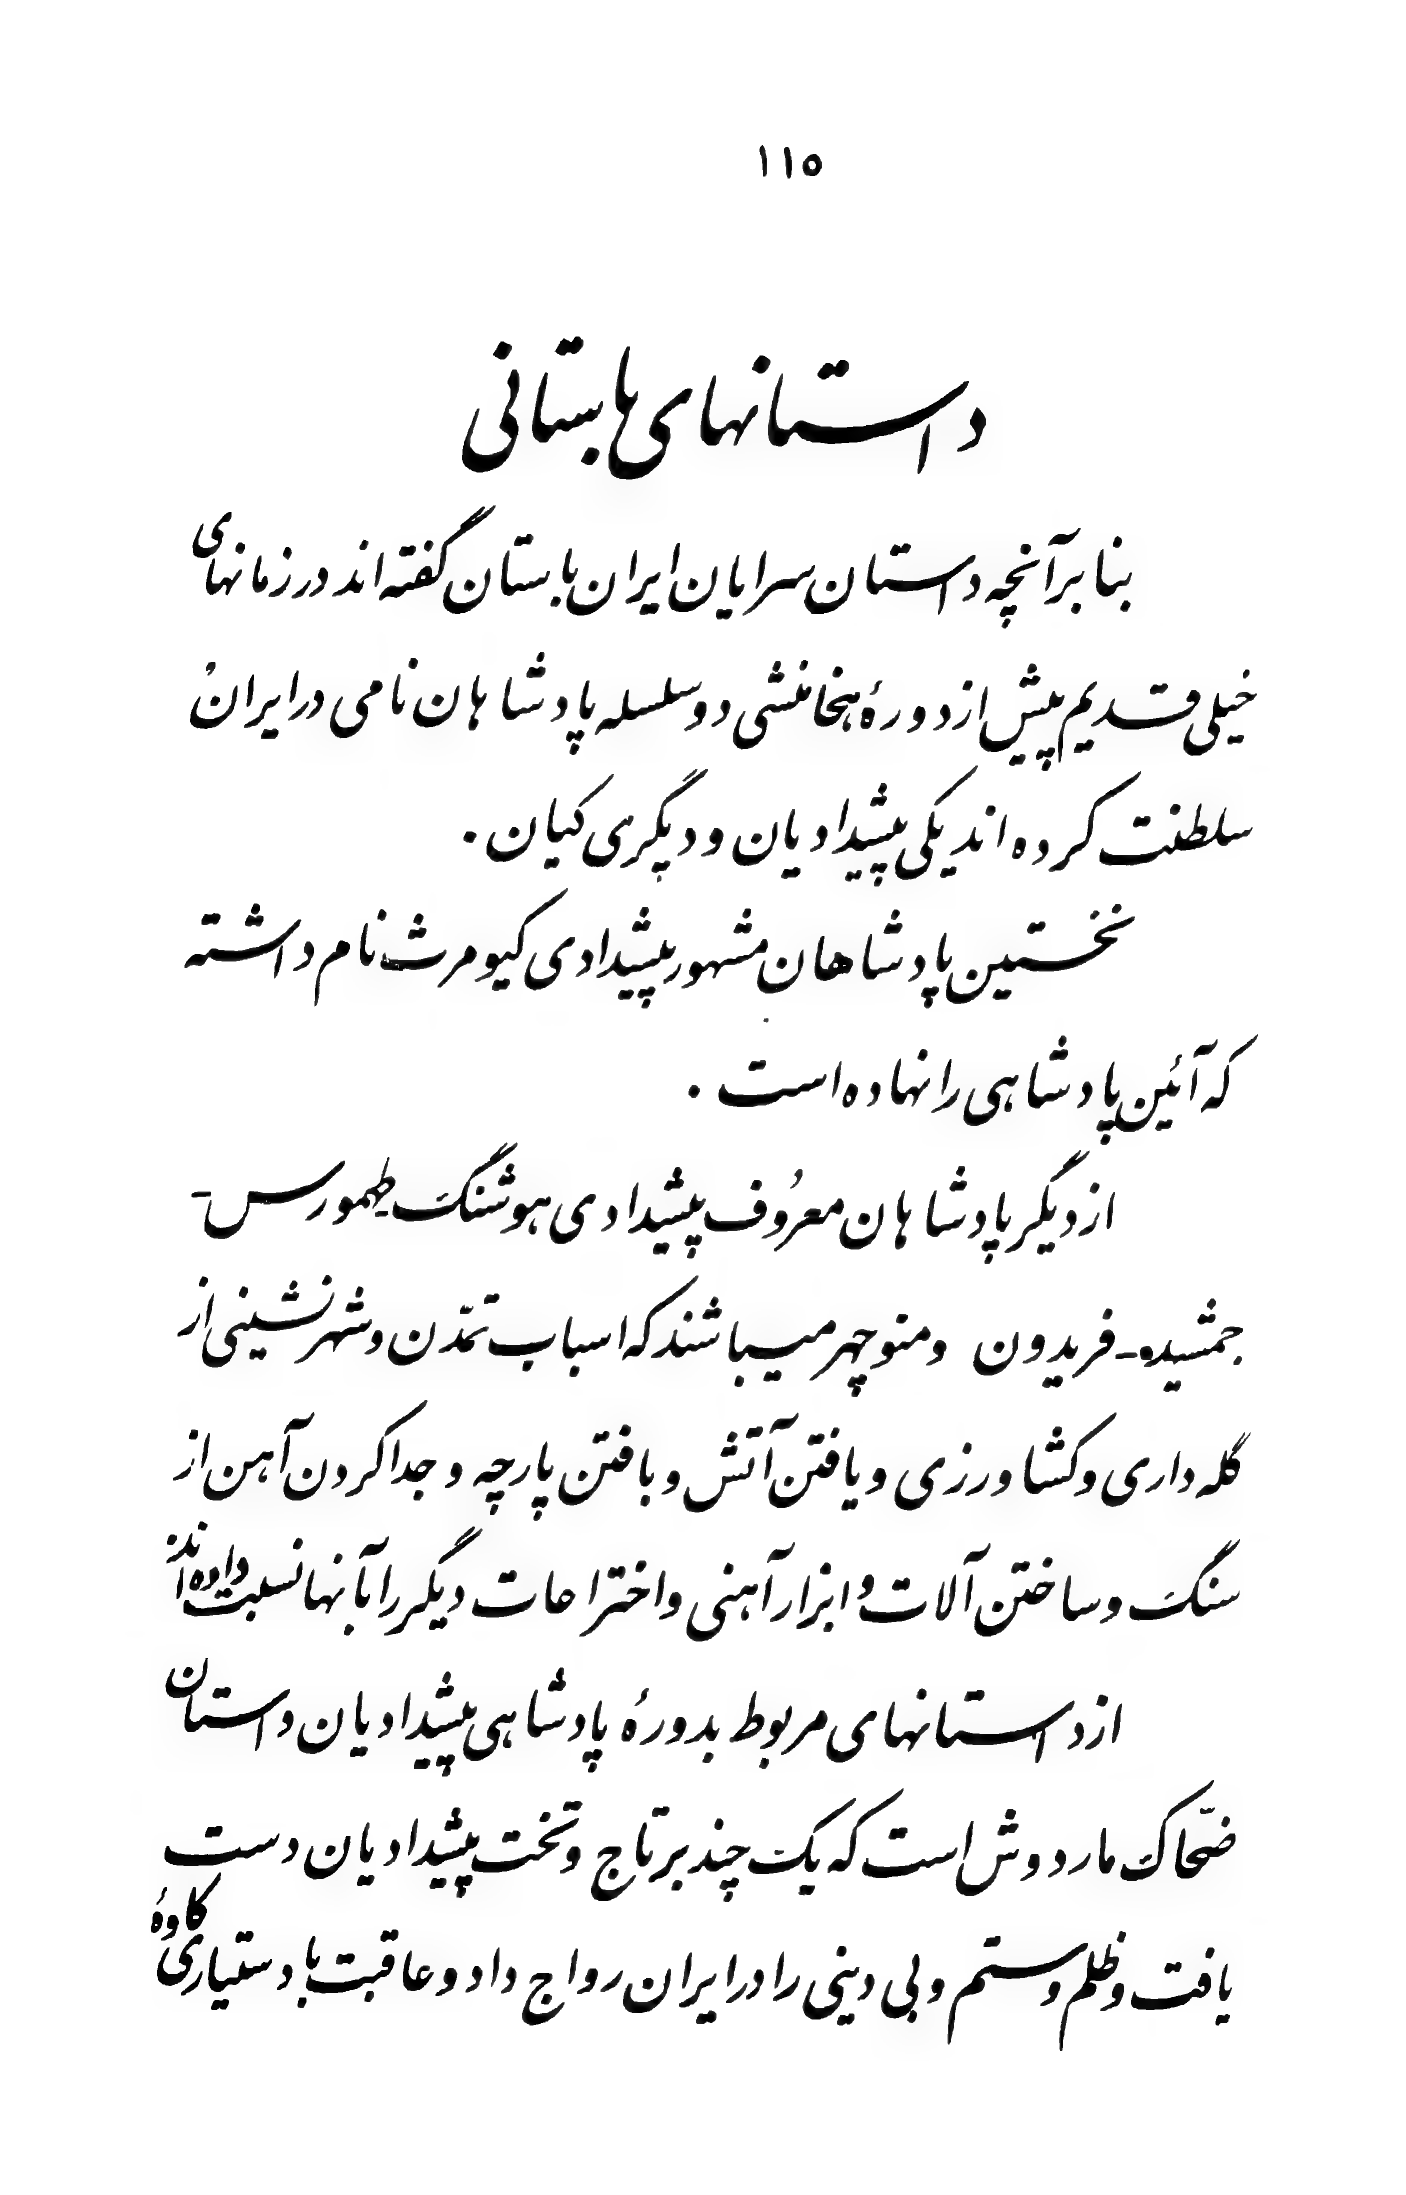 ۱۱۵
داستانهای باستانی
بنا بر آنچه داستان سرایان ایران باستان گفته اند در زمانهای
خیلی قدیم پیش از دورهٔ هخامنشی دو سلسله پادشاهان نامی در ایران
سلطنت کرده اند یکی پیشدادیان و دیگری کیان .
نخستین پادشاهان مشهور پیشدادی کیومرث نام داشته
که آئین پادشاهی را نهاده است .
از دیگر پادشاهان معرُوف پیشدادی هوشنگ ـ طهمورس ـ
جمشید ـ فریدون و منوچهر میباشند که اسباب تمدّن و شهر نشینی از
گله داری و کشاورزی و یافتن آتش و بافتن پارچه و جدا کردن آهن از
سنگ و ساختن آلات و ابزار آهنی و اختراعات دیگر را بآنها نسبت داده اند
از داستانهای مربوط بدورهٔ پادشاهی پیشدادیان داستان
ضحّاک ماردوش است که یک چند بر تاج و تخت پیشدادیان دست
یافت و ظلم و ستم و بی دینی را در ایران رواج داد و عاقبت با دستیاری کاوهٔ